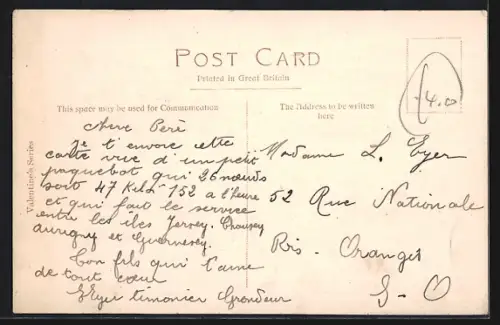 POST CARD
Printed in Great Britain
This space may be used for Communication
The Address to be written here
Valentine's Series
4.0
Père
Je t'envoie cette
carte vue d'un petit
paquebot qui 26 nœuds
soit 47 Kil 152 a l'heure
et qui fait le service
entre les iles Jersey, Chausey
aurigny et Guernesey.
Ton fils qui t'aime
de tout cœur
LEyer timonier Grondeur
Madame L. Eyer
52 Rue Nationale
Ris. Orangis
S-O